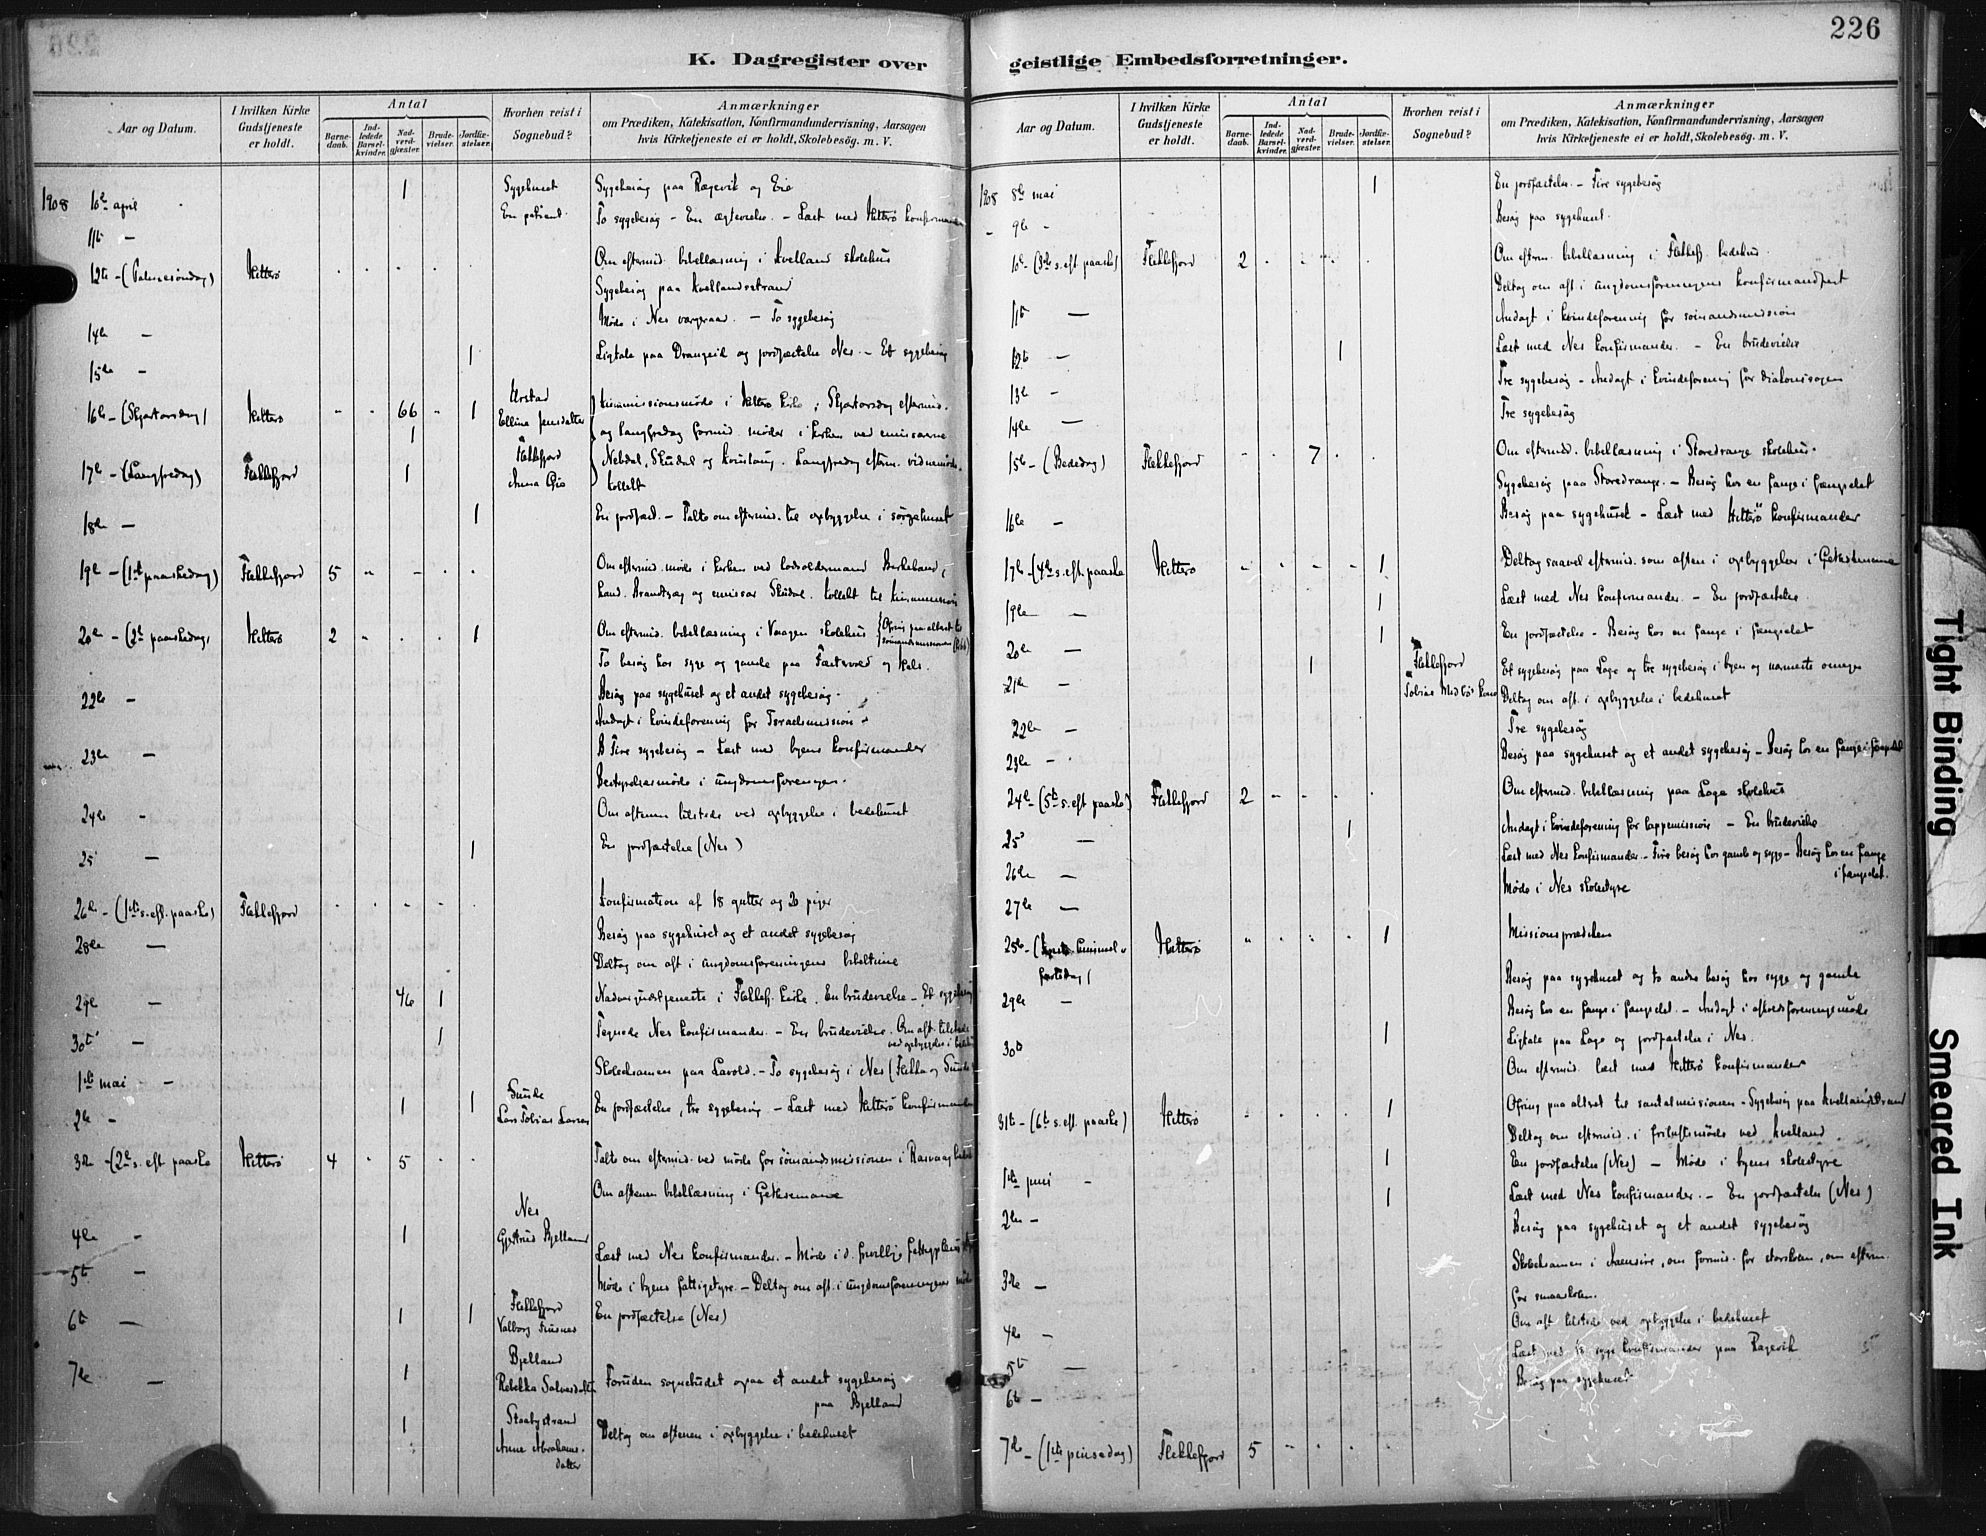 226
K. Dagregister over
geistlige Embedsforretninger.
Aar og Datum.
I hvilken Kirke Gudstjeneste er holdt.
Antal
Barne-daab.
Ind-ledede Barsel-kvinder.
Nad-verd-gjæster.
Brude-vielser.
Jordfæ-stelser.
Hvorhen reist i Sognebud?
Anmærkninger
om Prædiken, Katekisation, Konfirmandundervisning, Aarsagen
hvis Kirketjeneste ei er holdt, Skolebesög. m. V.
1908 10de april 1 Sygehuset Sygebesög paa Rægevik og Eie
En patient
11te — To sygebesög – En ægtevielse. – Læst med Hitterö konfirmander
12te – (Palmesöndag) Hitterö Om eftermid. bibellæsning i Kvelland skolehus
Sygebesög paa Kvellandstrand
14de — Möde i Nes vergeraad. – To sygebesög
15de — 1 Ligtale paa Drangeid og jordfæstelse Nes. – Et sygebesög
16de – (Skjærtorsdag) Hitterö 66 1 Urstad Kinamissionsmöde i Hitterö kirke: Skjærtorsdag eftermid.
1 Elline Jensdatter og langfredag formid. möder i kirken ved emissærene
17de – (Langfredag) Flekkefjord 1 Flekkefjord Nebdal, Skudal og . Langfredag efterm. vidnemöde.
Anna Kollekt
18de — 1 En jordfæst. – Talte om eftermid. til opbyggelse i sörgehuset
19de – (1ste paaskedag) Flekkefjord 5 Om eftermid. möde i kirken ved lodsoldermand Birkeland,
kand. Brandtzæg og emissær Skudal. Kollekt til kinamissionen
20de – (2den paaskedag) Hitterö 2 1 Om eftermid. bibellæsning i Vaagen skolehus (Ofring paa alteret til sömandsmissionen
To besög hos syge og gamle paa og
22de — Besög paa sygehuset og et andet sygebesög.
Andagt i kvindeforening for Israelsmission
23de — Fire sygebesög – Læst med byens konfirmander
Bestyrelsesmöde i ungdomsforeningen.
24de — Om aftenen tilstede ved opbyggelse i bedehuset
25 — 1 En jordfæstelse (Nes)
26de – (1ste s. eft. paaske) Flekkefjord Konfirmation af 18 gutter og 20 piger
28de — Besög paa sygehuset og et andet sygebesög
Deltog om aft. i ungdomsforeningens bibeltime
29de — 46 1 Nadvergudstjeneste i Flekkef. kirke. En brudevielse – Et sygebesög
30te — 1 Tegnede Nes konfirmander. – En brudevielse. Om aft. tilstede
ved opbyggelse i bedehus
1ste mai — Skoleeksamen paa Lavold. – To sygebesög i Nes (Flikka og Sunde)
2den — 1 1 Sunde En jordfæstelse, tre sygebesög – Læst med Hitterö konfirmander
Lars Tobias Larsen
3die – (2den s. eft. paaske Hitterö 4 5 Talte om eftermid. ved möde for sömandsmissionen i Rasvaag
Om aftenen bibellæsning i Gethsemane
4de — 1 Nes
Gjertrud Bjelland Læst med Nes konfirmander. – Möde i d. frivillige
5te — Möde i byens fattigstyre. – Deltog om aft. i ungdomsforeningens möde
6te — 1 1 Flekkefjord En jordfæstelse (Nes)
Valborg
7de — 1 Bjelland
Rebekka Salvesdatter Foruden sognebudet ogsaa et andet sygebesög
paa Bjelland
1 Stoebystrand Deltog om aftenen i opbyggelse i bedehuset
Anne Abrahams-
datter
Aar og Datum.
I hvilken Kirke Gudstjeneste er holdt.
Antal
Barne-daab.
Ind-ledede Barsel-kvinder.
Nad-verd-gjæster.
Brude-vielser.
Jordfæ-stelser.
Hvorhen reist i Sognebud?
Anmærkninger
om Prædiken, Katekisation, Konfirmandundervisning, Aarsagen
hvis Kirketjeneste ei er holdt, Skolebesög. m. V.
1908 8de mai 1 En jordfæstelse. – Fire sygebesög
– 9de – Besög paa sygehuset.
10de – (3die s. eft. paaske) Flekkefjord 2 Om efterm. bibellæsning i Flekkef. bedehus
Deltog om aft. i ungdomsforeningens konfirmandfest
11te — Andagt i kvindeforening for sömandsmission
12te — 1 Læst med Nes konfirmander. – En brudevielse
13de — Tre sygebesög – Andagt i kvindeforening for diakonissesagen
14de — Tre sygebesög
15de – (Bededag) Flekkefjord 7 Om eftermid. bibellæsning i Storedrange skolehus.
Sygebesög paa Storedrange. – Besög hos en fange i fængselet
16de — Besög paa sygehuset – Læst med Hitterö konfirmander
17de – (4de s. eft. paaske Hitterö 1 Deltog saavel eftermid. som aften i opbyggelse i Gethsemane
19de — 1 Læst med Nes konfirmander. – En jordfæstelse.
20de — 1 En jordfæstelse – Besög hos en fange i fængselet
21de — 1 Flekkefjord Et sygebesög paa Loge og tre sygebesög i byen og nærmeste omegn
Tobias Midbös kone Deltog om aft. i opbyggelse i bedehuset
22de — Tre sygebesög
23de — Besög paa sygehuset og et andet sygebesög – Besög hos en fange i fængselet
24de – (5te s. eft. paaske) Flekkefjord 2 Om eftermid. bibellæsning paa Loge skolehus
25 — 1 Andagt i kvindeforening for lappemission – En brudevielse
26de — Læst med Nes konfirmander – Fire besög hos gamle og syge – Besög hos en fange
i fængselet.
27de — Möde i Nes skolestyre
28de – ( himmel- Hitterö 1 Missionsprædiken
fartsdag)
Besög paa sygehuset og to andre besög hos syge og gamle
29de — Besög hos en fange i fængselet. – Andagt i afholdsforeningsmöde
30te 1 Ligtale paa Loge og jordfæstelse i Nes.
Om eftermid. læst med Hitterö konfirmander
31te – (6te s. eft. paaske) Hitterö 1 Ofring paa altret til santalmissionen – Sygebesög paa Kvellandstrand
Deltog om eftermid. i friluftsmöde ved Kvelland
1ste juni – 1 En jordfæstelse (Nes) – Möde i byens skolestyre
2den – 1 Læst med Nes konfirmander. – En jordfæstelse (Nes)
Besög paa sygehuset og et andet sygebesög
3die — Skoleeksamen i Aaensire, om formid. for storskolen, om efterm.
for smaaskolen.
4de — Om aft. tilstede ved opbyggelse i bedehuset
5te — Læst med to syge konfirmander paa Rægevik
6te — Besög paa sygehuset
7de – (1ste pinsedag) Flekkefjord 5
Tight Binding
Smeared Ink